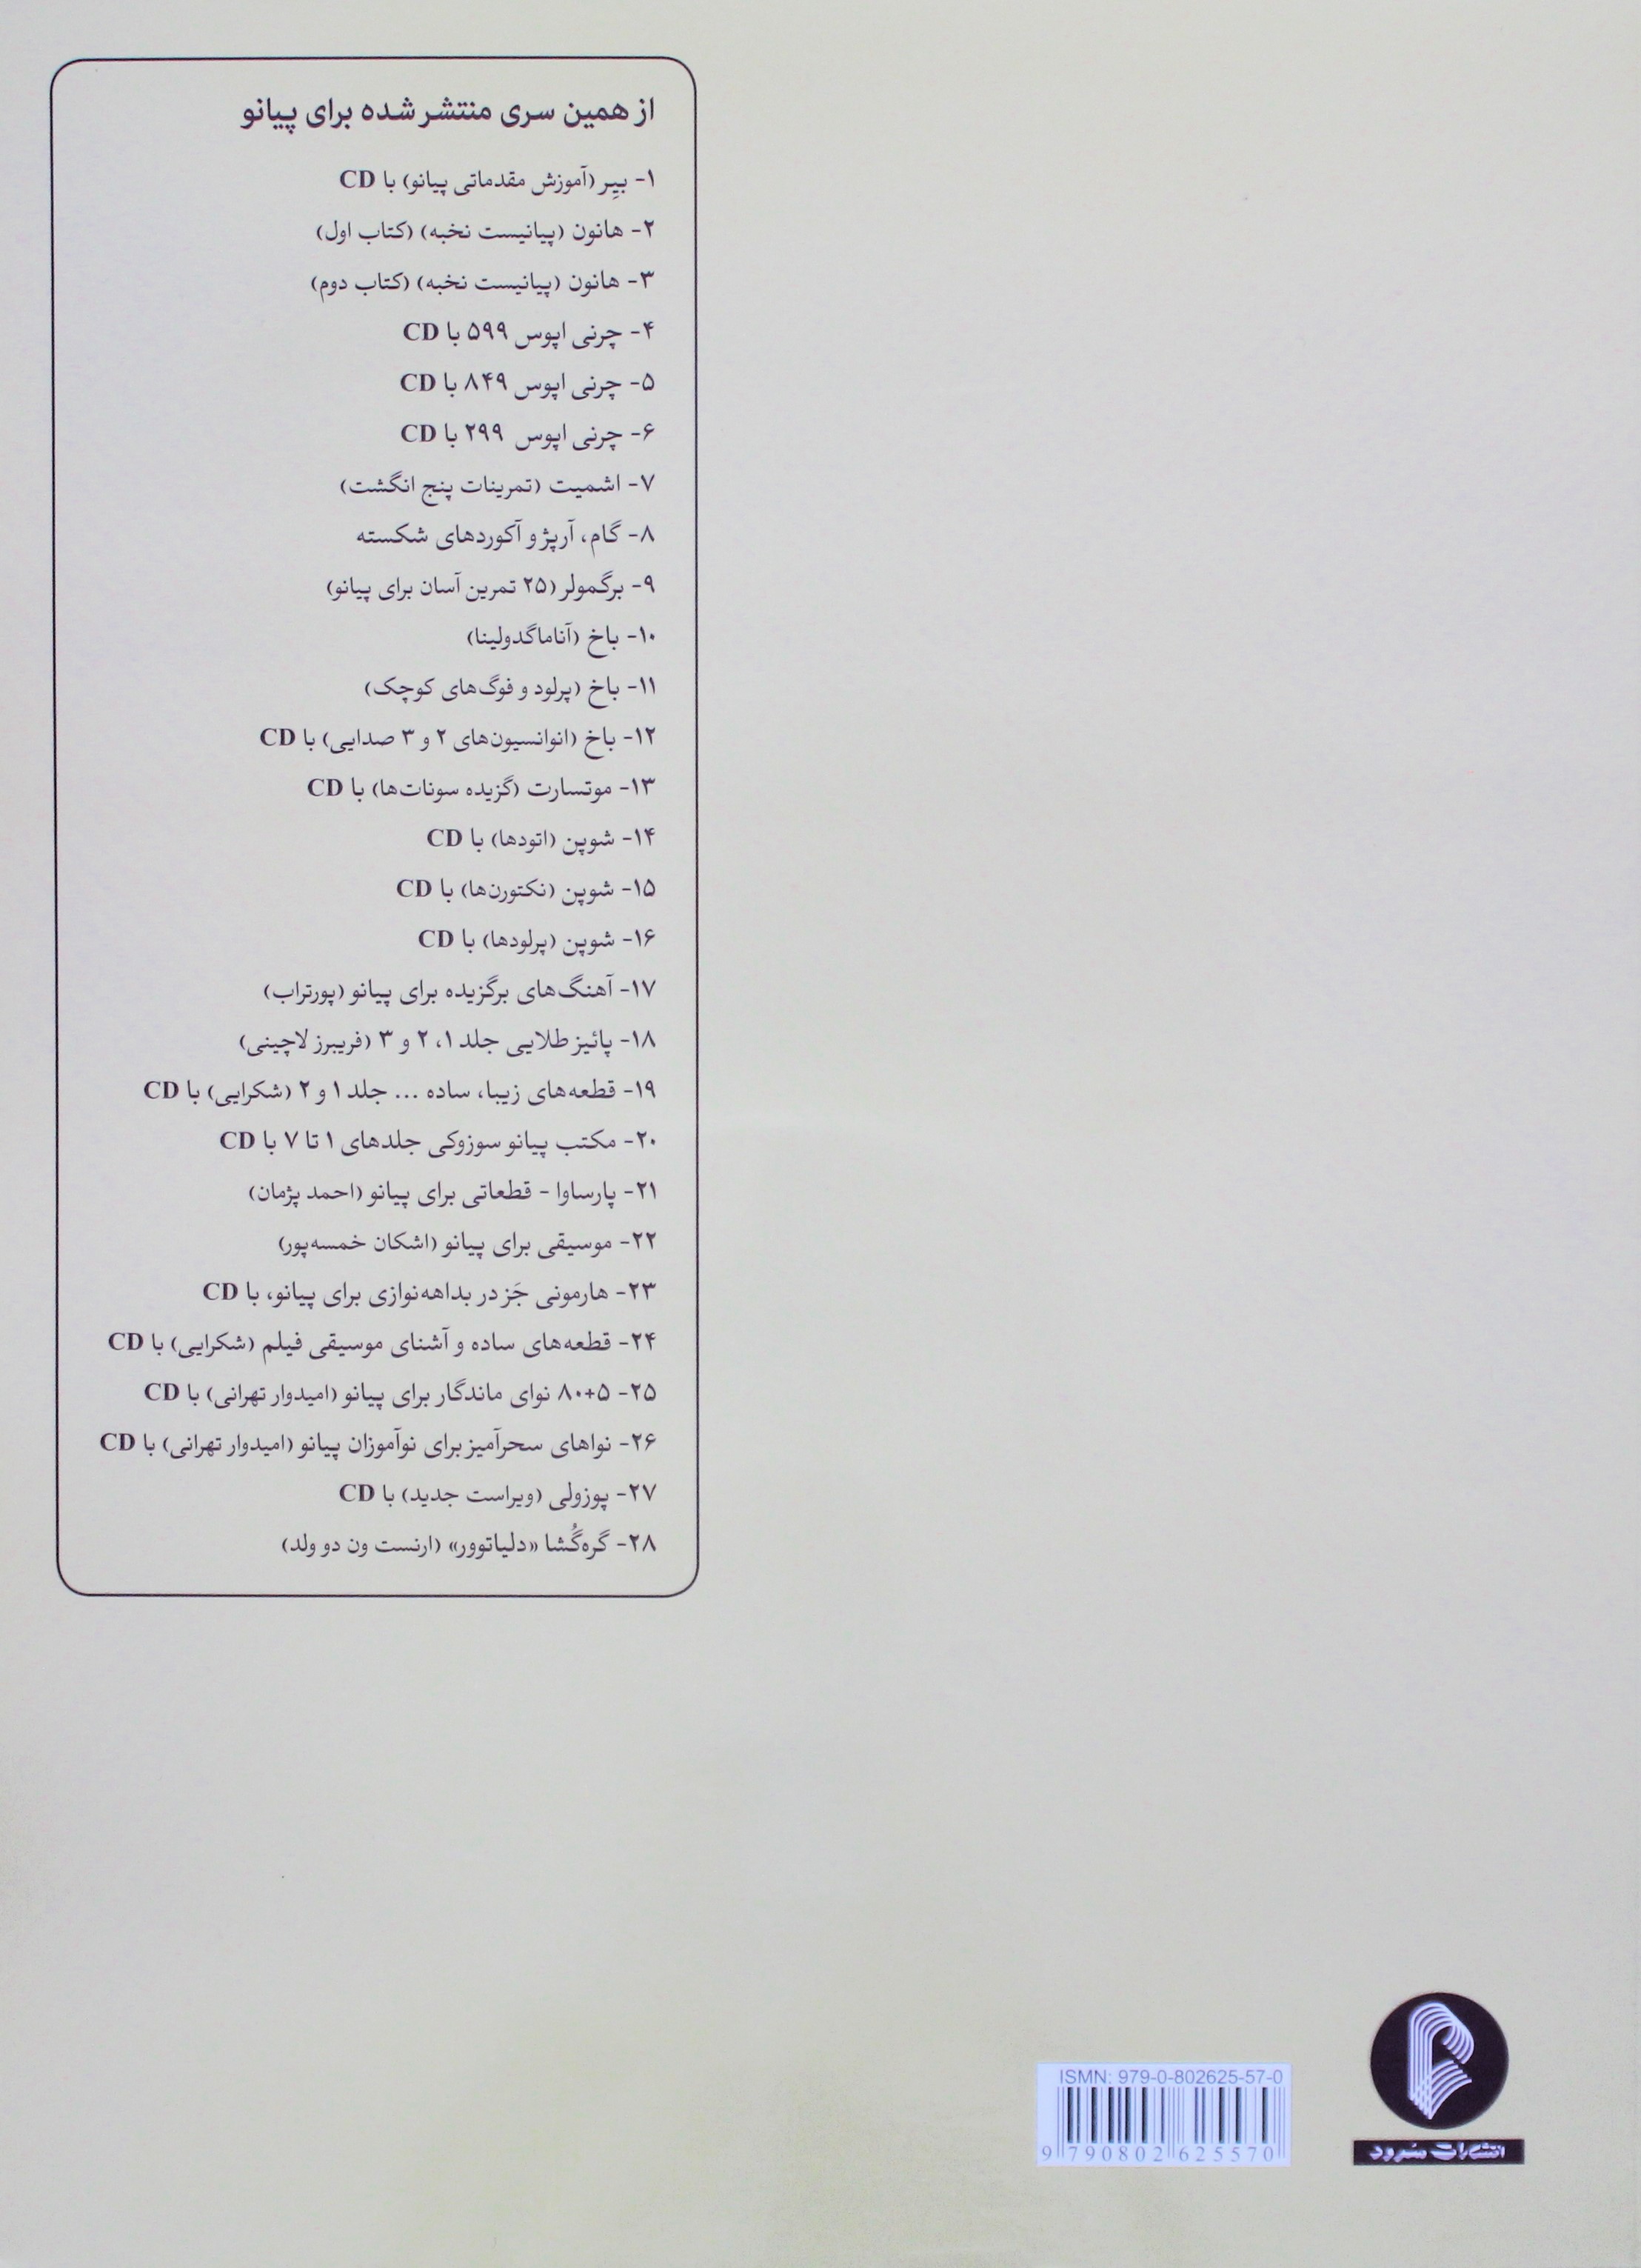 از همین سری منتشر شده برای پیانو
۱- بِیِر (آموزش مقدماتی پیانو) با CD
۲- هانون (پیانیست نخبه) (کتاب اول)
۳- هانون (پیانیست نخبه) (کتاب دوم)
۴- چرنی اپوس ۵۹۹ با CD
۵- چرنی اپوس ۸۴۹ با CD
۶- چرنی اپوس ۲۹۹ با CD
۷- اشمیت (تمرینات پنج انگشت)
۸- گام، آرپژ و آکوردهای شکسته
۹- برگمولر (۲۵ تمرین آسان برای پیانو)
۱۰- باخ (آناماگدولینا)
۱۱- باخ (پرلود و فوگ‌های کوچک)
۱۲- باخ (انوانسیون‌های ۲ و ۳ صدایی) با CD
۱۳- موتسارت (گزیده سونات‌ها) با CD
۱۴- شوپن (اتودها) با CD
۱۵- شوپن (نکتورن‌ها) با CD
۱۶- شوپن (پرلودها) با CD
۱۷- آهنگ‌های برگزیده برای پیانو (پورتراب)
۱۸- پائیز طلایی جلد ۱، ۲ و ۳ (فریبرز لاچینی)
۱۹- قطعه‌های زیبا، ساده ... جلد ۱ و ۲ (شکرایی) با CD
۲۰- مکتب پیانو سوزوکی جلدهای ۱ تا ۷ با CD
۲۱- پارساوا - قطعاتی برای پیانو (احمد پژمان)
۲۲- موسیقی برای پیانو (اشکان خمسه‌پور)
۲۳- هارمونی جَز در بداهه‌نوازی برای پیانو، با CD
۲۴- قطعه‌های ساده و آشنای موسیقی فیلم (شکرایی) با CD
۲۵- ۵+۸۰ نوای ماندگار برای پیانو (امیدوار تهرانی) با CD
۲۶- نواهای سحرآمیز برای نوآموزان پیانو (امیدوار تهرانی) با CD
۲۷- پوزولی (ویراست جدید) با CD
۲۸- گره‌گُشا «دلیاتوور» (ارنست ون دو ولد)
ISMN: 979-0-802625-57-0
9 790802 625570
انتشارات سرود